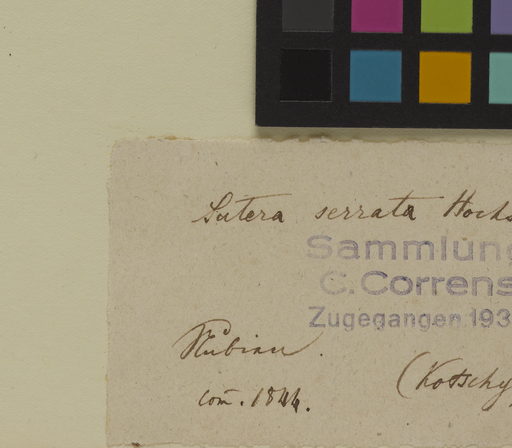 Sutera serrata Hochs
Sammlung
C. Correns
Zugegangen 193
Nubien.
com̄. 1844.
(Kotschy